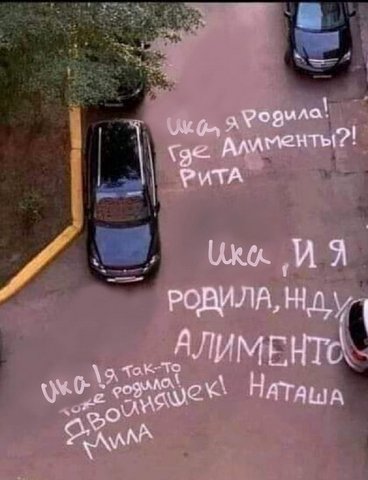 Ика, я Родила!
Где Алименты?!
Рита
Ика, И Я
РОДИЛА, ЖДУ
АЛИМЕНТО
НАТАША
Ика! Я так-то
тоже родила!
Двойняшек!
Мила